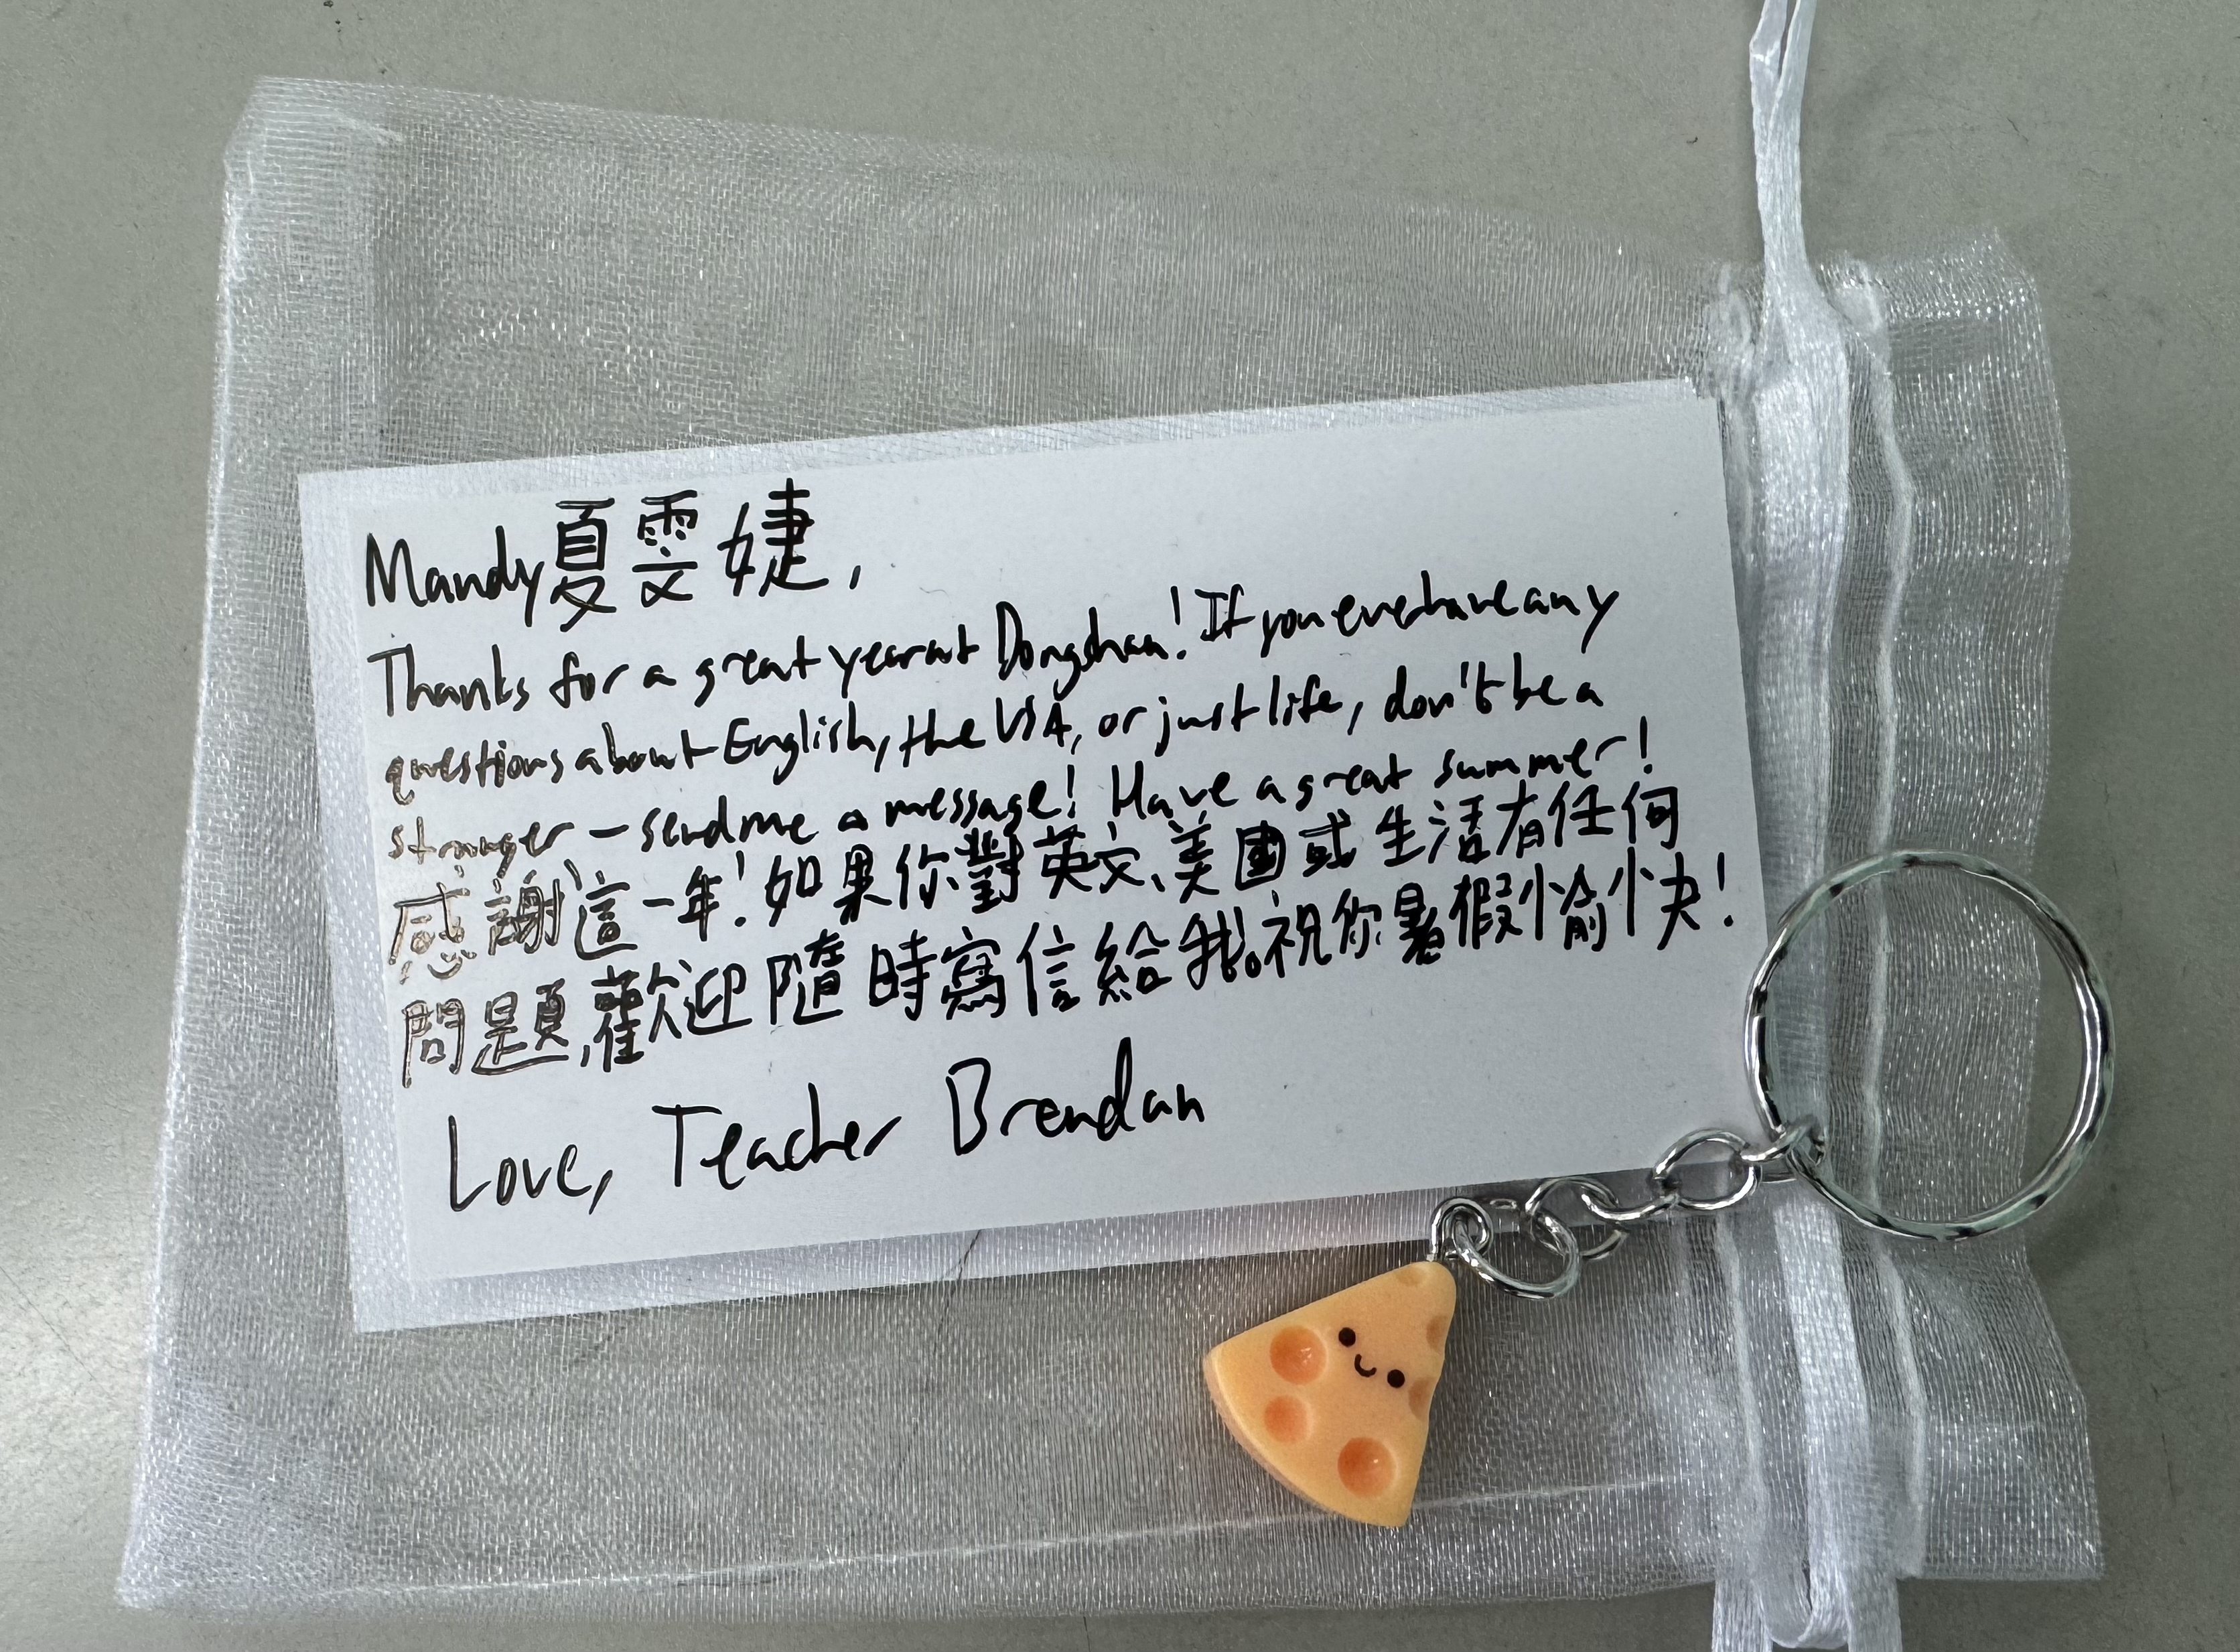 Mandy夏雯婕,
Thanks for a great year at Dongshan! If you ever have any
questions about English, the USA, or just life, don't be a
stranger – send me a message! Have a great summer!
感謝這一年!如果你對英文、美國或生活有任何
問題,歡迎隨時寫信給我。祝你暑假愉快!
Love, Teacher Brendan